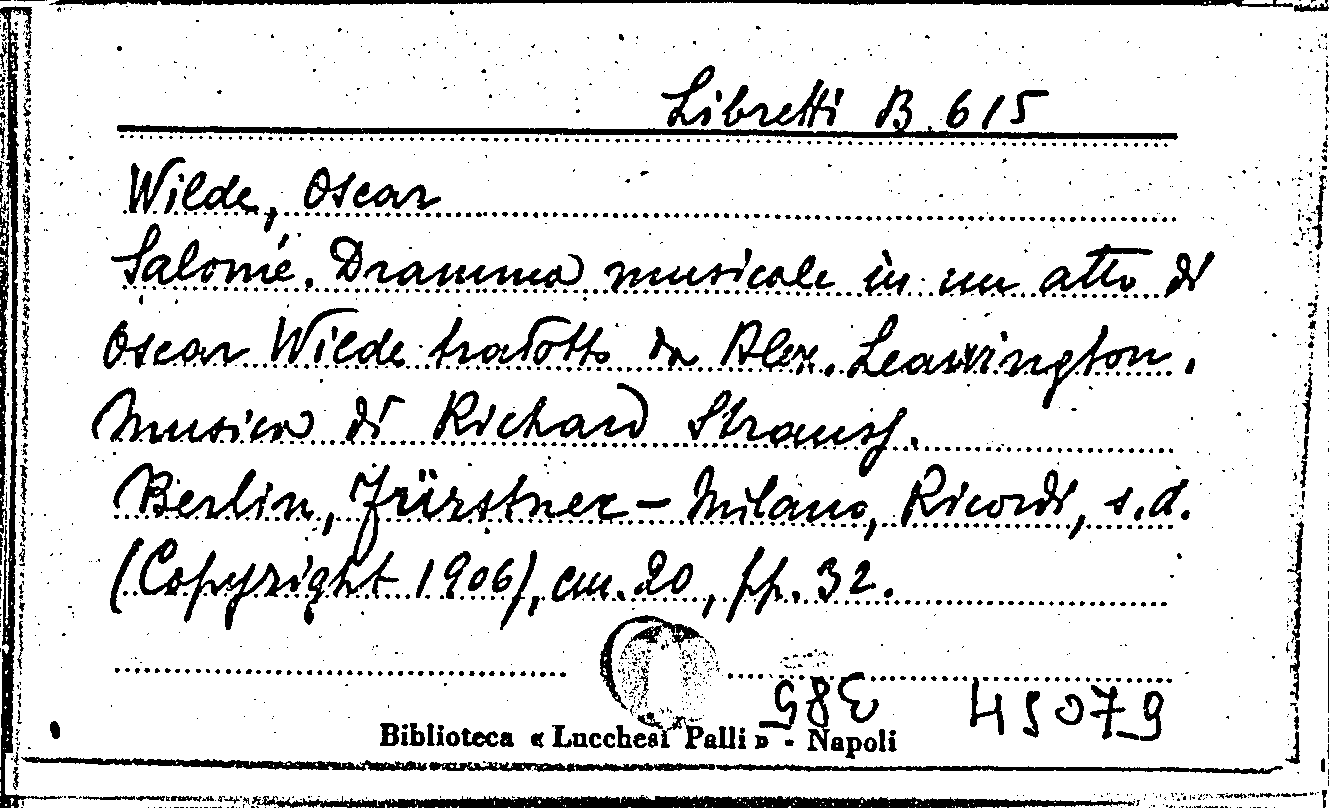 Libretti B. 615
Wilde, Oscar
Salomé. Dramma musicale in un atto di
Oscar Wilde tradotto da Alex. Leawington.
Musica di Richard Strauss.
Berlin, Fürstner – Milano, Ricordi, s.d.
(Copyright 1906), cm. 20, pp. 32.
Biblioteca « Lucchesi Palli » - Napoli